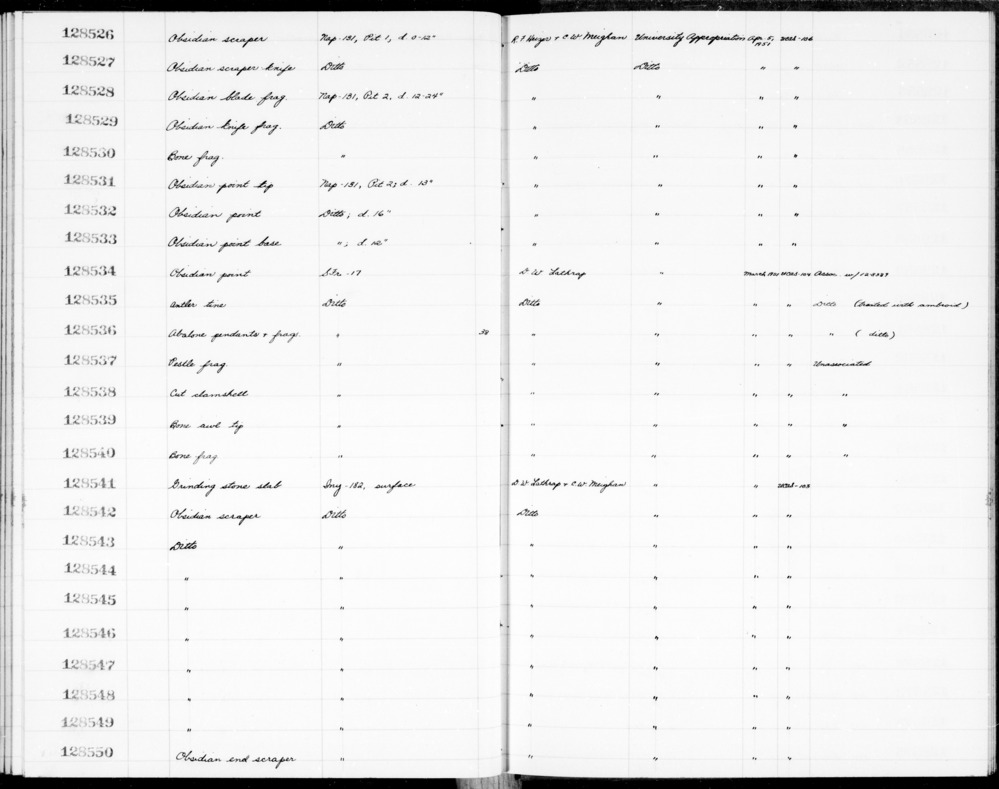 128526 Obsidian scraper Nap-131, Pit 1, d. 0-12" R. F. Heizer & C. W. Meighan University Appropriation Apr. 5, 1951 UCAS-106
128527 Obsidian scraper knife Ditto Ditto Ditto " "
128528 Obsidian blade frag. Nap-131, Pit 2, d. 12-24" " " " "
128529 Obsidian knife frag. Ditto " " " "
128530 Bone frag. " " " " "
128531 Obsidian point tip Nap-131, Pit 2; d. 13" " " " "
128532 Obsidian point Ditto; d. 16" " " " "
128533 Obsidian point base "; d. 12" " " " "
128534 Obsidian point SFr-17 D. W. Lathrap " March 1951 Assoc. w/
128535 Antler tine Ditto Ditto " " " Ditto (treated with ambroid)
128536 Abalone pendants & frags. " 38 " " " " " (ditto)
128537 Pestle frag. " " " " " Unassociated
128538 Cut clamshell " " " " " "
128539 Bone awl tip " " " " " "
128540 Bone frag " " " " " "
128541 Grinding stone slab Iny-182, surface D. W. Lathrap & C. W. Meighan " "
128542 Obsidian scraper Ditto Ditto " " "
128543 Ditto " " " " "
128544 " " " " " "
128545 " " " " " "
128546 " " " " " "
128547 " " " " " "
128548 " " " " " "
128549 " " " " " "
128550 Obsidian end scraper " " " " "